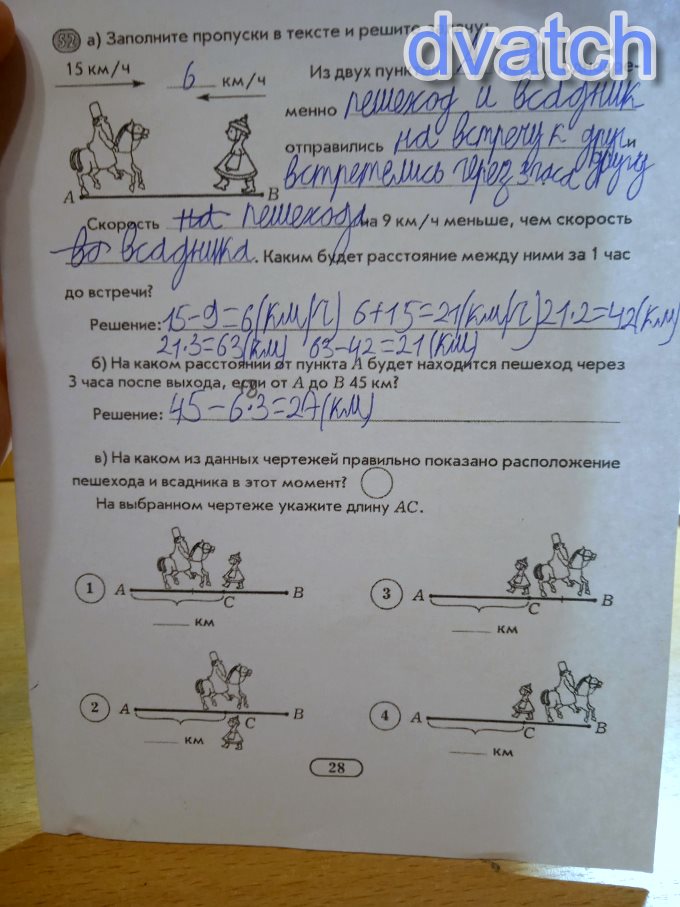 dvatch
32 а) Заполните пропуски в тексте и решите
15 км/ч 6 км/ч Из двух
менно пешеход и всадник
отправились на встречу к друг и
встретелись через 3 часа другу
A B
Скорость на пешехода на 9 км/ч меньше, чем скорость
во всадника. Каким будет расстояние между ними за 1 час
до встречи?
Решение: 15-9=6(км/ч) 6+15=21(км/ч) 21·2=42(км)
21·3=63(км) 63-42=21(км)
б) На каком расстоянии от пункта A будет находится пешеход через
3 часа после выхода, если от A до B 45 км?
18
Решение: 45-6·3=27(км)
в) На каком из данных чертежей правильно показано расположение
пешехода и всадника в этот момент?
На выбранном чертеже укажите длину AC.
1 A C B
км
3 A C B
км
2 A C B
км
4 A C B
км
28